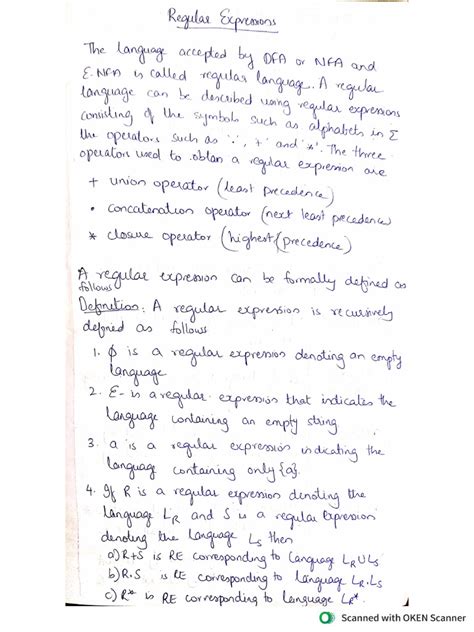 Regular Expressions
The language accepted by DFA or NFA and
ε-NFA is called regular language. A regular
language can be described using regular expressions
consisting of the symbols such as alphabets in Σ
the operators such as '.', '+' and '*'. The three
operators used to obtan a regular expression are
+ union operator (least precedence)
• concatenation operator (next least precedence)
* closure operator (highest precedence)
A regular expression can be formally defined as
follows
Definition: A regular expression is recursively
defined as follows
1. ϕ is a regular expression denoting an empty
language
2. ε- is a regular expression that indicates the
language containing an empty string
3. a is a regular expression indicating the
language containing only {a}.
4. If R is a regular expression denoting the
language LR and S is a regular expression
denoting the language LS then
a) R+S is RE corresponding to language LR∪LS
b) R.S is RE corresponding to language LR.LS
c) R* is RE corresponding to language LR*.
Scanned with OKEN Scanner